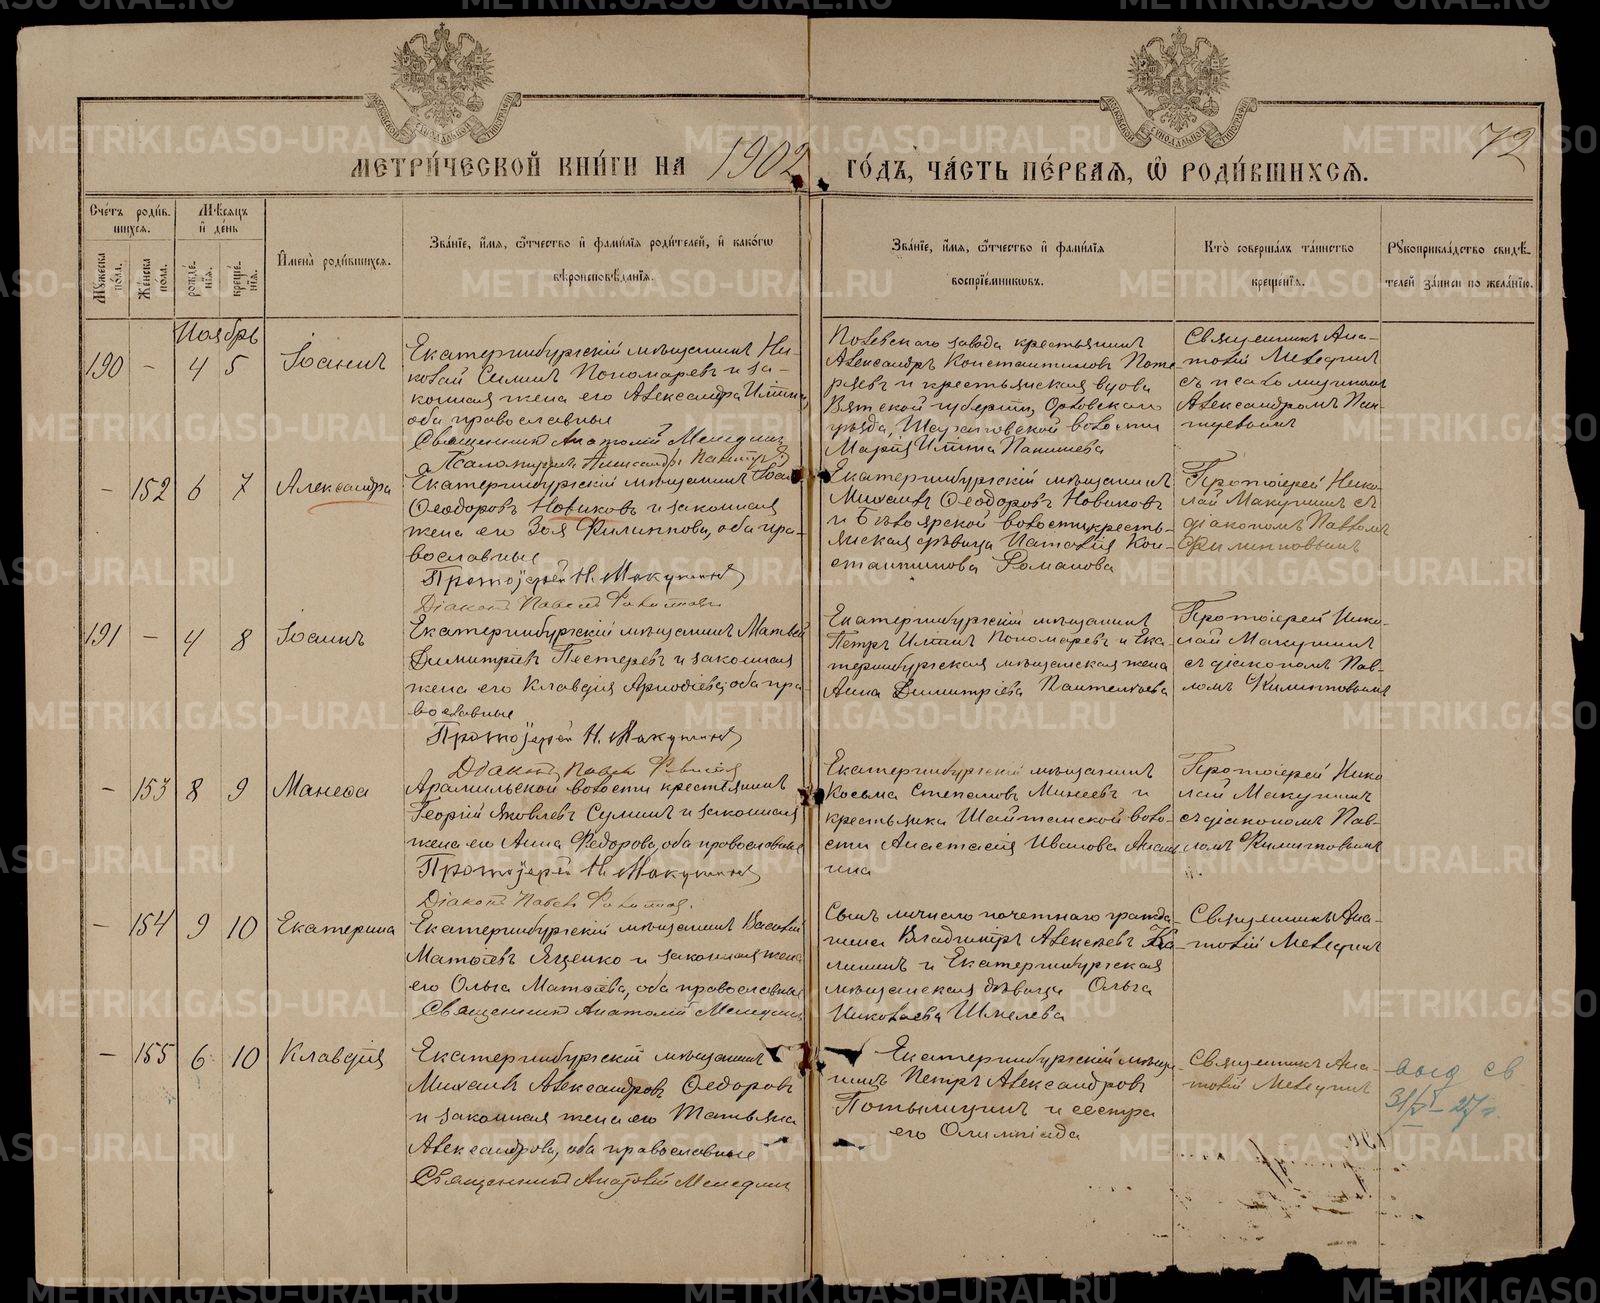 МЕТРИ́ЧЕСКОЙ КНИ́ГИ НА 1902 ГО́ДЪ, ЧА́СТЬ ПЕ́РВАЯ, Ѡ҆ РОДИ́ВШИХСЯ.
72
Сче́тъ роди́в-
шихся.
Мужеска по́ла.
Же́нска по́ла.
Мѣсяцъ и де́нь
рожде́нія.
креще́нія.
Имена̀ роди́вшихся.
Зва́ніе, и́мя, о́тчество и фами́лія роди́телей, и како́го
вѣроисповѣ́данія.
Зва́ніе, и́мя, о́тчество и фами́лія
воспріе́мниковъ.
Кто̀ соверша́лъ та́инство
креще́нія.
Рукоприкла́дство свидѣ́-
телей за́писи по жела́нію.
Ноябрь
190 - 4 5 Іоаннъ
Екатеринбургскій мѣщанинъ Ни-
колай Силинъ Пономаревъ и за-
конная жена его Александра Ильина,
оба православные
Священникъ Анатолій
Псаломщикъ Александръ
Полевского завода крестьянинъ
Александръ Константиновъ Поте-
ряевъ и крестьянская вдова
Вятской губерніи, Орловскаго
уѣзда, волости
Марія Ильина
Священникъ Ана-
толій
съ псаломщикомъ
Александромъ
- 152 6 7 Александра
Екатеринбургскій мѣщанинъ
Ѳеодоровъ Новиковъ и законная
жена его Зоя Филиппова, оба пра-
вославные
Протоіерей Н. Макушинъ
Діаконъ Павелъ
Екатеринбургскій мѣщанинъ
Михаилъ Ѳеодоровъ Новиковъ
и Бѣлоярской волости кресть-
янская дѣвица Наталія Кон-
стантинова Романова
Протоіерей Нико-
лай Макушинъ съ
діакономъ Павломъ
Филипповымъ
191 - 4 8 Іоаннъ
Екатеринбургскій мѣщанинъ Матвѣй
Димитріевъ Пестеревъ и законная
жена его Клавдія оба пра-
вославные
Протоіерей Н. Макушинъ
Діаконъ Павелъ
Екатеринбургскій мѣщанинъ
Петръ Ильинъ Пономаревъ и Ека-
теринбургская мѣщанская жена
Анна Димитріева Пантелѣева
Протоіерей Нико-
лай Макушинъ
съ діакономъ Пав-
ломъ Филипповымъ
- 153 8 9 Манеѳа
Арамильской волости крестьянинъ
Георгій Яковлевъ Суминъ и законная
жена его Анна Федорова, оба православные
Протоіерей Н. Макушинъ
Діаконъ Павелъ
Екатеринбургскій мѣщанинъ
Косьма Степановъ Минеевъ и
крестьянка Шайтанской воло-
сти Анастасія Иванова
Протоіерей Нико-
лай Макушинъ
съ діакономъ Пав-
ломъ Филипповымъ
- 154 9 10 Екатерина
Екатеринбургскій мѣщанинъ Василій
Матѳіевъ Яценко и законная жена
его Ольга Матѳіева, оба православные
Священникъ Анатолій
Сынъ личнаго почетнаго гражда-
нина Владиміръ Алексѣевъ Ка-
лининъ и Екатеринбургская
мѣщанская дѣвица Ольга
Николаева Шмелева
Священникъ Ана-
толій
- 155 6 10 Клавдія
Екатеринбургскій мѣщанинъ
Михаилъ Александровъ Ѳедоровъ
и законная жена его Татьяна
Александрова, оба православные
Священникъ Анатолій
Екатеринбургскій мѣща-
нинъ Петръ Александровъ
Потылицинъ и сестра
его Олимпіада
Священникъ Ана-
толій
выд св
METRIKI.GASO-URAL.RU